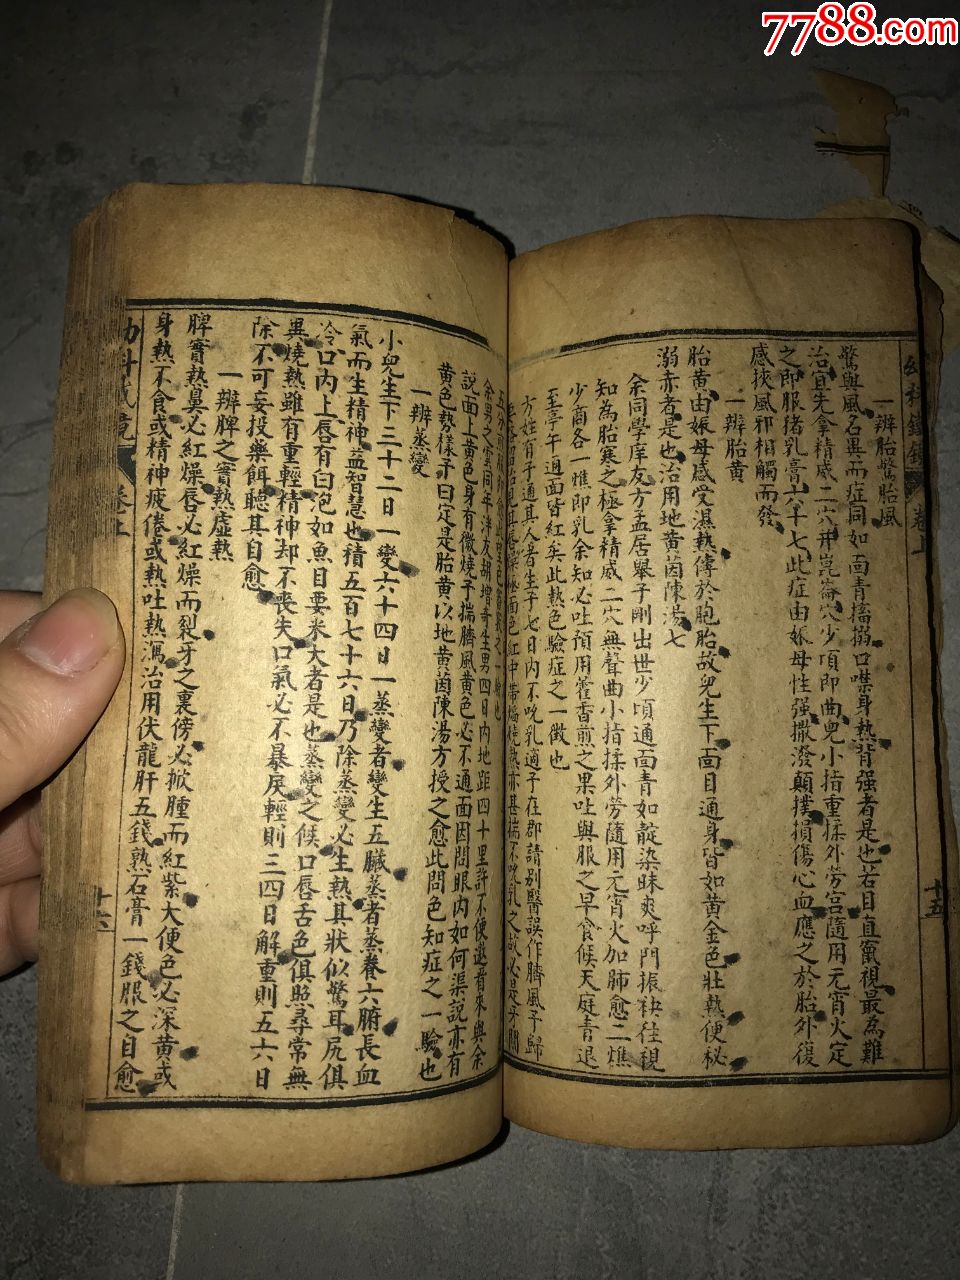 7788.com
幼科鐵鏡 卷上 十五
一辨胎驚胎風
驚與風名異而症同如面青搐搦口噤身熱背强者是也若目直竄視最為難
治宜先拿精威二穴并崑崙穴少頃即曲兒小指重揉外勞宮隨用元宵火定
之即服豬乳膏六十七此症由娠母性强撒潑顛撲損傷心血應之於胎外復
感挾風邪相觸而發
一辨胎黄
胎黄由娠母感受濕熱傳於胞胎故兒生下面目通身皆如黄金色壯熱便秘
溺赤者是也治用地黄茵陳湯七
余同學庠友方孟居舉子剛出世少頃通面青如靛染昧爽呼門振袂往視
知為胎寒之極拿精威二穴無聲曲小指揉外勞隨用元宵火加肺愈二燋
少商各一燋即乳余知必吐預用藿香煎之果吐與服之早食候天庭青退
至亭午通面皆紅矣此熱色驗症之一徵也
方姓有子適其人者生子七日内不吮乳適予在郡請别醫誤作臍風予歸
余男之雲同年泮友胡增奇生男四日内地距四十里許不便邀看來與余
説面上黄色身有微燒予揣臍風黄色必不通面因問眼内如何渠説亦有
黄色熱樣予曰定是胎黄以地黄茵陳湯方授之愈此問色知症之一驗也
一辨蒸變
小兒生下三十二日一變六十四日一蒸變者變生五臟蒸者蒸養六腑長血
氣而生精神益智慧也積五百七十六日乃除蒸變必生熱其狀似驚耳尻俱
冷口内上唇有白泡如魚目要米大者是也蒸變之候口唇舌色俱照尋常無
異燒熱雖有重輕精神却不喪失口氣必不暴戾輕則三四日解重則五六日
除不可妄投藥餌聽其自愈
一辨脾之實熱虚熱
脾實熱鼻必紅燥唇必紅燥而裂牙之裏傍必掀腫而紅紫大便色必深黄或
身熱不食或精神疲倦或熱吐熱瀉治用伏龍肝五錢熟石膏一錢服之自愈
幼科鐵鏡 卷上 十六